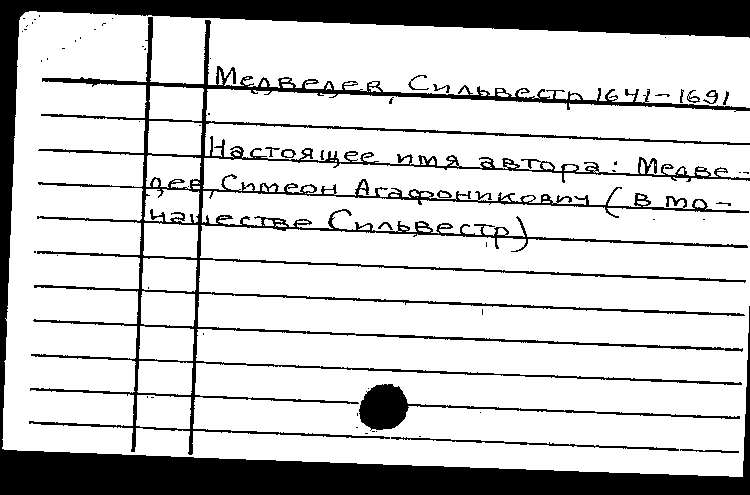 Медведев, Сильвестр 1641-1691
Настоящее имя автора: Медве-
дев, Симеон Агафоникович (в мо-
нашестве Сильвестр)